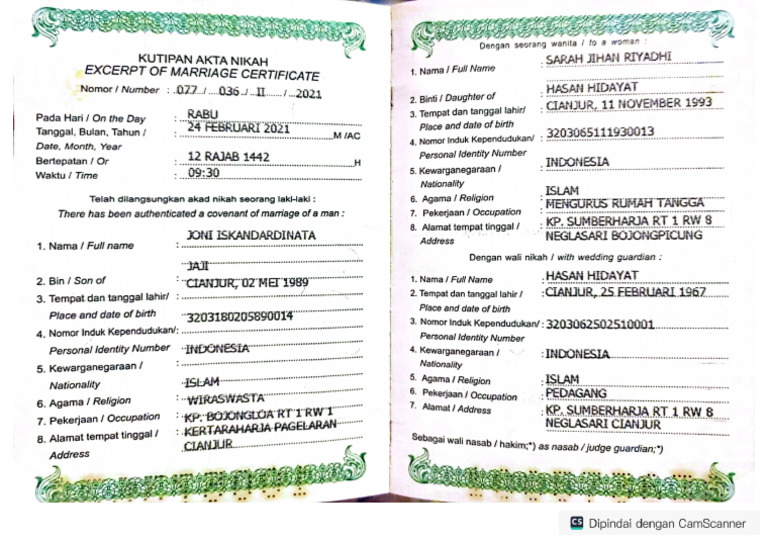 KUTIPAN AKTA NIKAH
EXCERPT OF MARRIAGE CERTIFICATE
Nomor / Number : 077 / 036 / II / 2021
Pada Hari / On the Day : RABU
Tanggal, Bulan, Tahun / : 24 FEBRUARI 2021 M /AC
Date, Month, Year
Bertepatan / Or : 12 RAJAB 1442 H
Waktu / Time : 09:30
Telah dilangsungkan akad nikah seorang laki-laki :
There has been authenticated a covenant of marriage of a man :
1. Nama / Full name : JONI ISKANDARDINATA
2. Bin / Son of : JAJI
3. Tempat dan tanggal lahir/ : CIANJUR, 02 MEI 1989
Place and date of birth
4. Nomor Induk Kependudukan/ : 3203180205890014
Personal Identity Number
5. Kewarganegaraan / : INDONESIA
Nationality
6. Agama / Religion : ISLAM
7. Pekerjaan / Occupation : WIRASWASTA
8. Alamat tempat tinggal / : KP. BOJONGLOA RT 1 RW 1
Address KERTARAHARJA PAGELARAN
CIANJUR
Dengan seorang wanita / to a woman :
1. Nama / Full Name : SARAH JIHAN RIYADHI
2. Binti / Daughter of : HASAN HIDAYAT
3. Tempat dan tanggal lahir/ : CIANJUR, 11 NOVEMBER 1993
Place and date of birth
4. Nomor Induk Kependudukan/ : 3203065111930013
Personal Identity Number
5. Kewarganegaraan / : INDONESIA
Nationality
6. Agama / Religion : ISLAM
7. Pekerjaan / Occupation : MENGURUS RUMAH TANGGA
8. Alamat tempat tinggal / : KP. SUMBERHARJA RT 1 RW 8
Address NEGLASARI BOJONGPICUNG
Dengan wali nikah / with wedding guardian :
1. Nama / Full Name : HASAN HIDAYAT
2. Tempat dan tanggal lahir / : CIANJUR, 25 FEBRUARI 1967
Place and date of birth
3. Nomor Induk Kependudukan/ : 3203062502510001
Personal Identity Number
4. Kewarganegaraan / : INDONESIA
Nationality
5. Agama / Religion : ISLAM
6. Pekerjaan / Occupation : PEDAGANG
7. Alamat / Address : KP. SUMBERHARJA RT 1 RW 8
NEGLASARI CIANJUR
Sebagai wali nasab / hakim;*) as nasab / judge guardian;*)
CS Dipindai dengan CamScanner